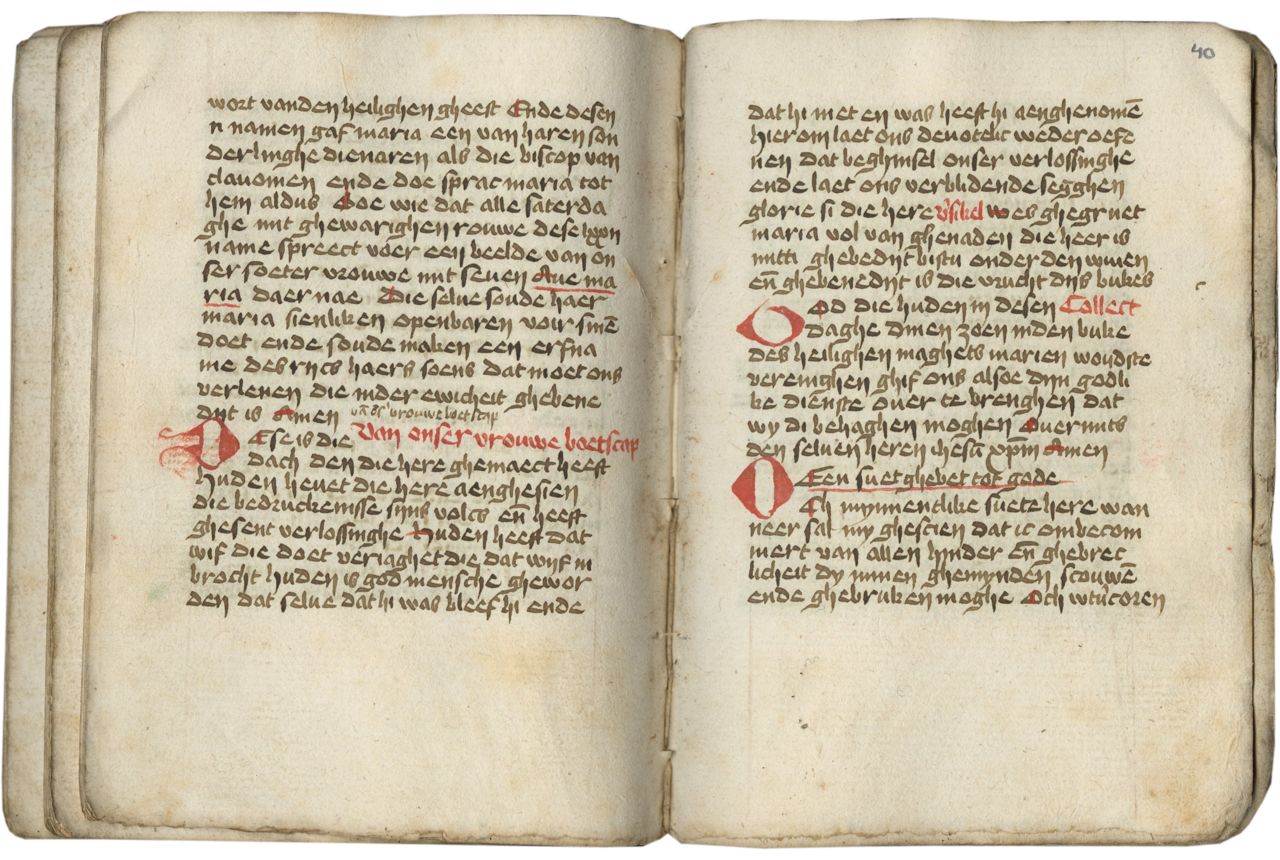 wort vanden heilighen gheest Ende desen
n namen gaf maria een van haren son
derlinghe dienaren als die biscop van
clauomen ende doe sprac maria tot
hem aldus Soe wie dat alle saterda
ghe mit ghewarighen rouwe dese lxxn
name spreect voer een beelde van on
ser soeter vrouwe mit seuen Aue ma
ria daer nae Die selue soude haer
maria sienliken openbaren voir sinē
doet ende soude maken een erfna
me des rijcs haers soens dat moet ons
verlenen die inder ewicheit ghebene
dijt is Amen
vrouwe boetscap
Ese is die Van onser vrouwe boetscap
D dach den die here ghemaect heeft
huden heuet die here aenghesien
die bedruckenisse sijns volcs eñ heeft
ghesent verlossinghe Huden heeft dat
wif die doet veriaghet die dat wijf in
brocht huden is god mensche ghewor
den dat selue dat hi was bleef hi ende
40
dat hi niet en was heeft hi aenghenomē
hierom laet ons deuotelic wederoefe
nen dat beghinsel onser verlossinghe
ende laet ons verblidende segghen
glorie si die here v'sikel wes ghegruet
maria vol van ghenaden die heer is
mitti ghebedijt bistu onder den wiuen
eñ ghebenedijt is die vrucht dijs bukes
G OD die huden in desen Collect
daghe dinen zoen inden buke
des heilighen maghets marien woudste
verenighen ghif ons alsoe dijn godli
ke dienste ouer te brenghen dat
wy di behaghen moghen Ouermits
den seluen heren ihesū xp̄m Amen
Een suet ghebet tot gode
O Ch mynnentlike suete here wan
neer sal my ghescien dat ic ombecom
mert van allen hinder eñ ghebrec
licheit dy minen ghemynden scouwē
ende ghebruken moghe Och wtucoren